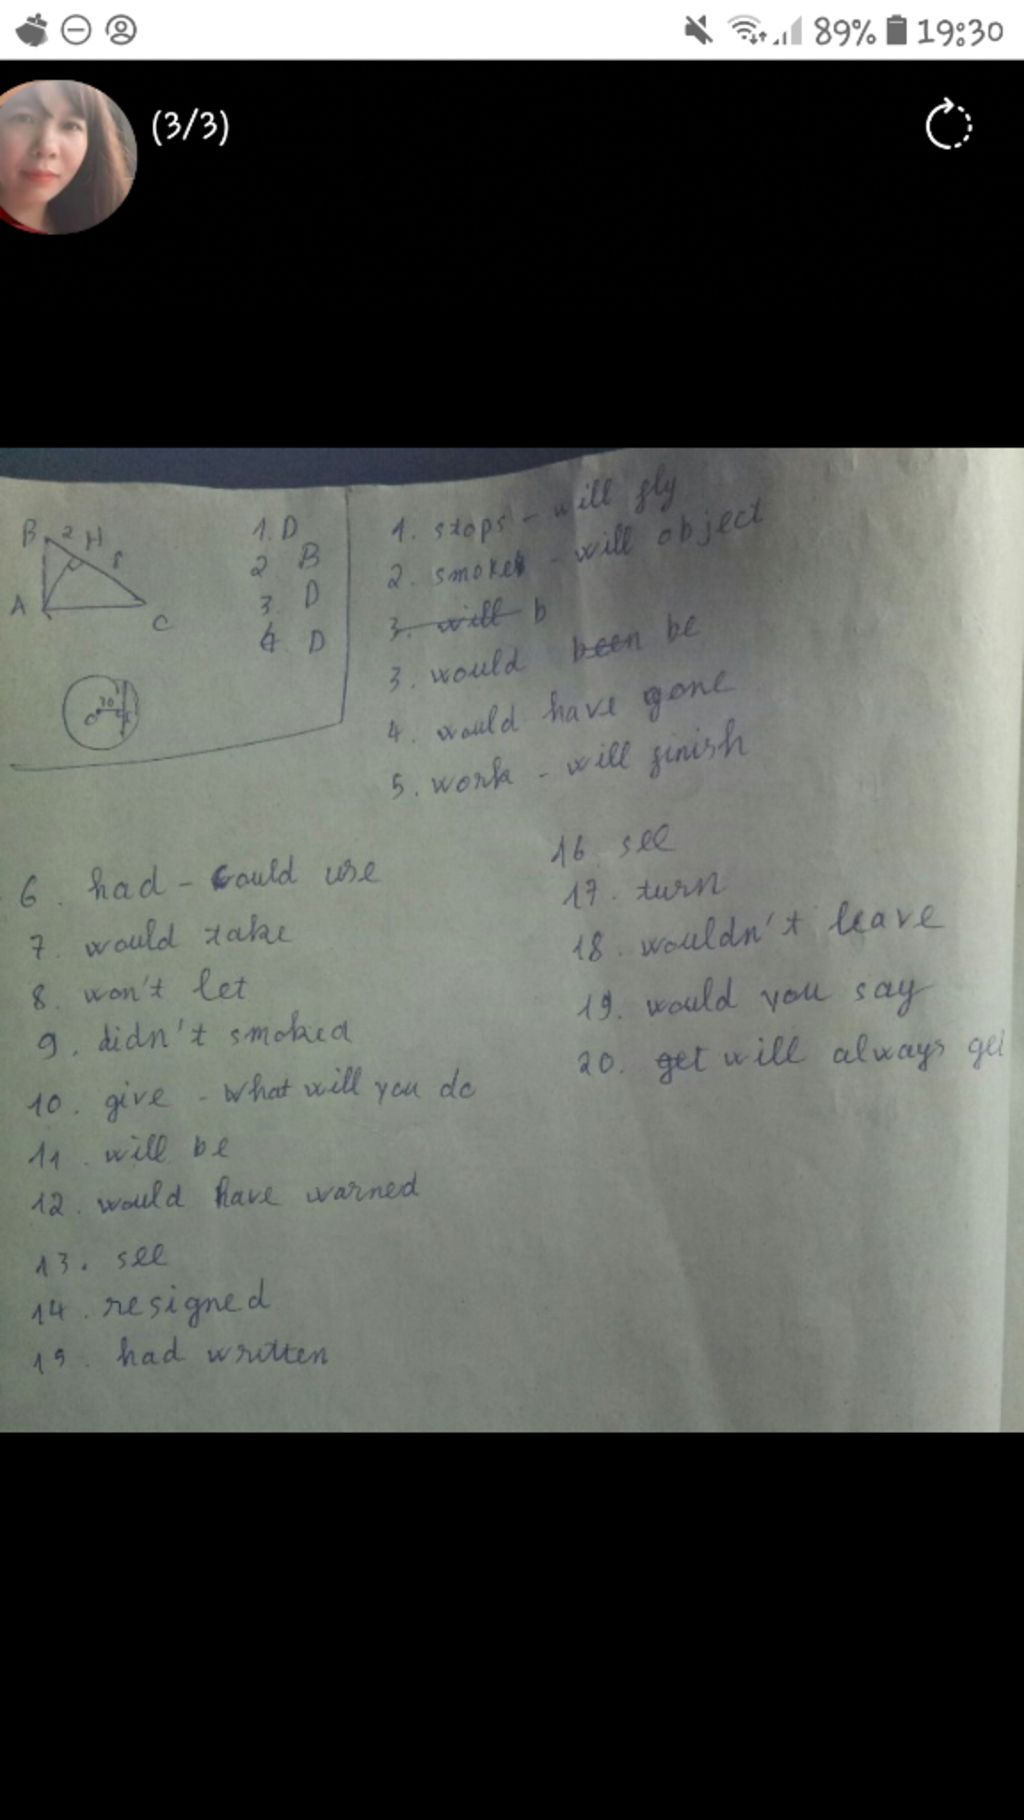 89% 19:30
(3/3)
B 2 H 8
A
C
O
1. D
2 B
3. D
4 D
1. stops - will fly
2. smokes - will object
3. will b
3. would been be
4. would have gone
5. work - will finish
6. had - could use
7. would take
8. won't let
9. didn't smoked
10. give - what will you do
11. will be
12. would have warned
13. see
14. resigned
15. had written
16. see
17. turn
18. wouldn't leave
19. would you say
20. get will always get